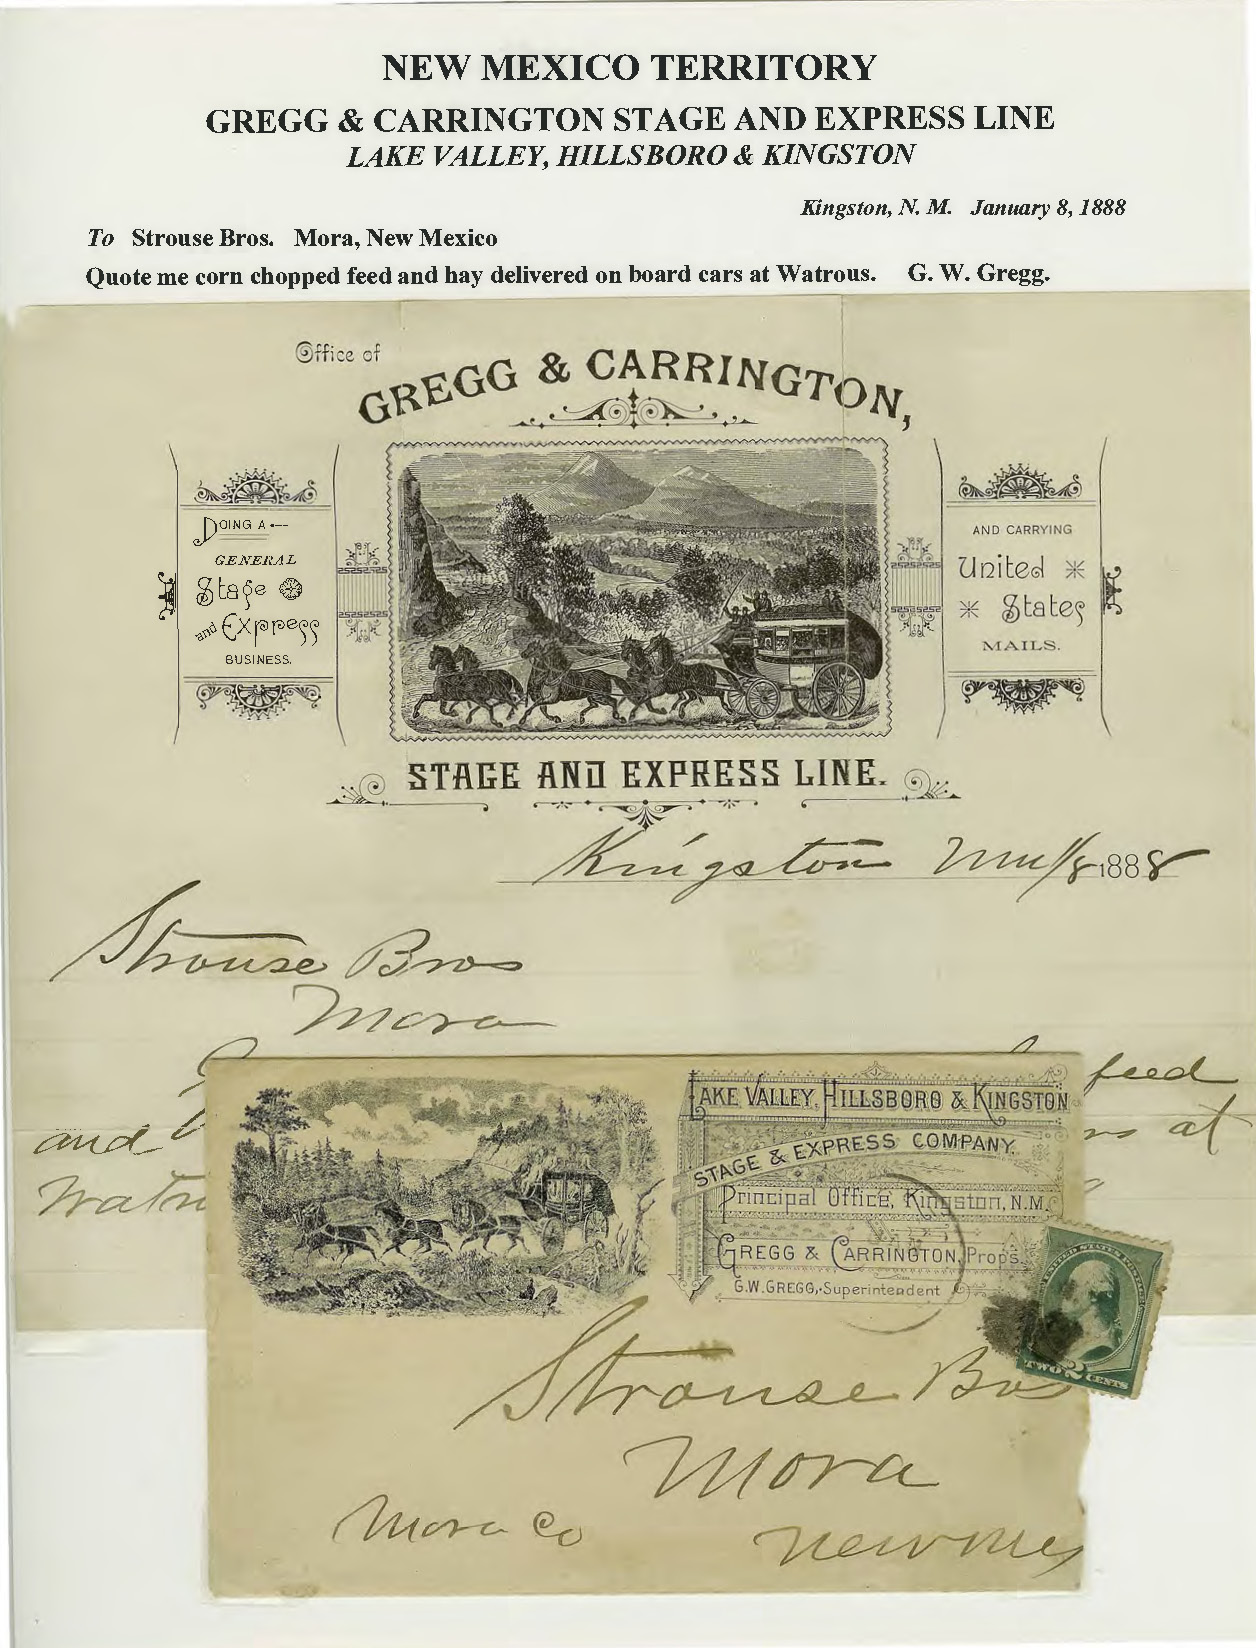 NEW MEXICO TERRITORY
GREGG & CARRINGTON STAGE AND EXPRESS LINE
LAKE VALLEY, HILLSBORO & KINGSTON
Kingston, N. M. January 8, 1888
To Strouse Bros. Mora, New Mexico
Quote me corn chopped feed and hay delivered on board cars at Watrous. G. W. Gregg.
Office of
GREGG & CARRINGTON,
DOING A
GENERAL
Stage
and Express
BUSINESS.
AND CARRYING
United
States
MAILS.
STAGE AND EXPRESS LINE.
Kingston 1/8 1888
Strouse Bros
Mora
feed
and at
Watrou
LAKE VALLEY, HILLSBORO & KINGSTON
STAGE & EXPRESS COMPANY.
Principal Office, Kingston, N.M.
GREGG & CARRINGTON, Props.
G.W. GREGG, Superintendent
UNITED STATES POSTAGE
TWO 2 CENTS
Strouse Bros
Mora
Mora Co
New Mex